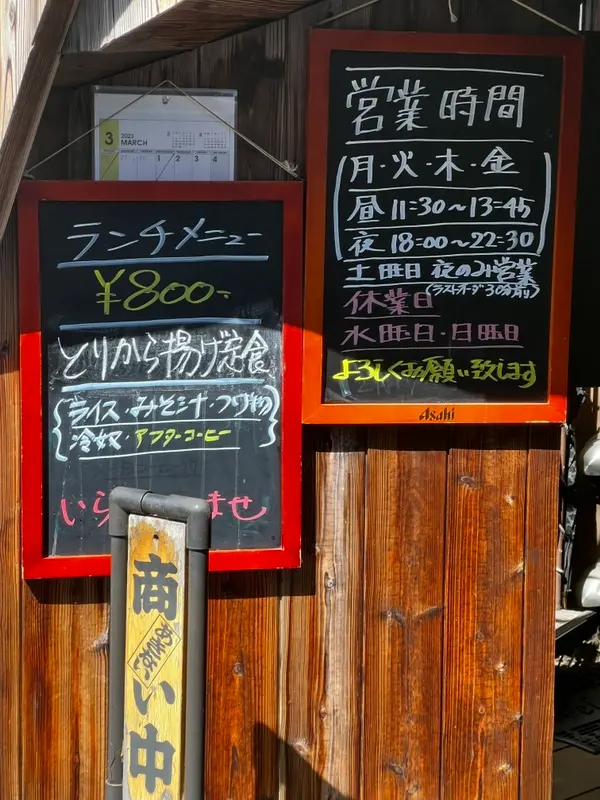 3
2023
MARCH
1 2 3 4
ランチメニュー
¥800-
とりから揚げ定食
ライス・みそ汁・つけ物
冷奴・アフターコーヒー
いら
ませ
営業時間
月・火・木・金
昼 11:30〜13:45
夜 18:00〜22:30
土曜日 夜のみ営業
(ラストオーダー30分前)
休業日
水曜日・日曜日
よろしくお願い致します
Asahi
商
い
中